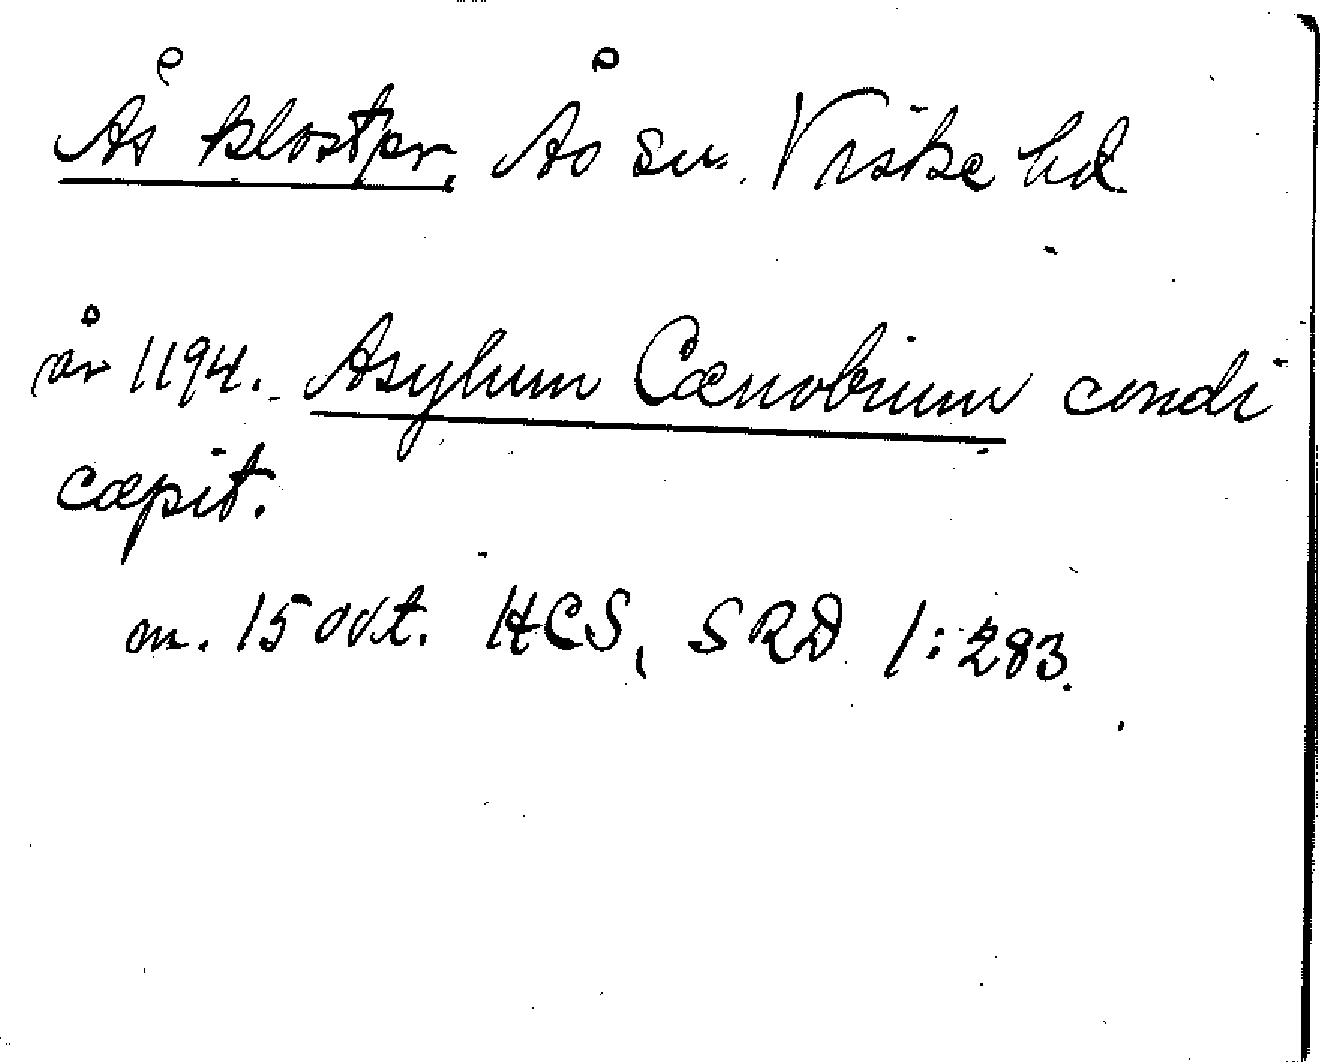 Ås kloster, Ås sn. Viske hd
år 1194. Asylum Cænobium condi
cæpit.
m. 15 ovt. HCS, SRD 1:283.